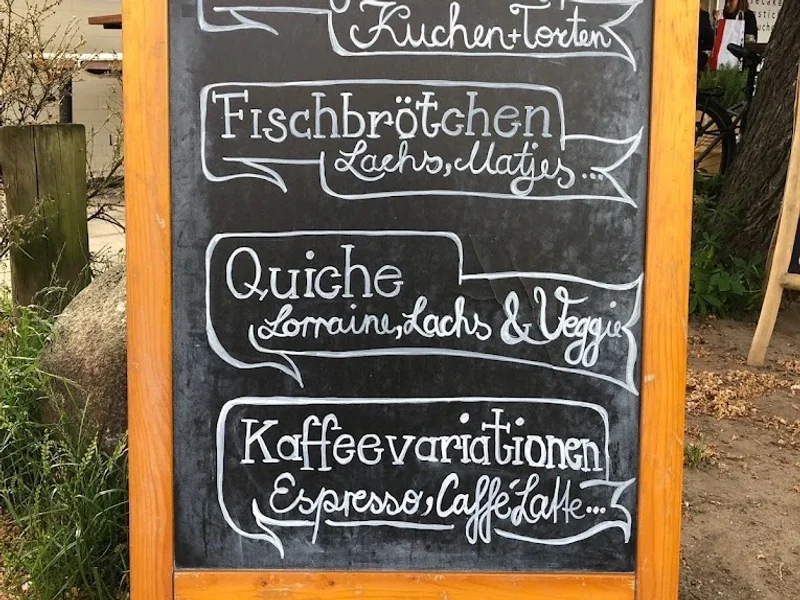 Kuchen+Torten
Fischbrötchen
Lachs, Matjes...
Quiche
Lorraine, Lachs & Veggie
Kaffeevariationen
Espresso, Caffé Latte...